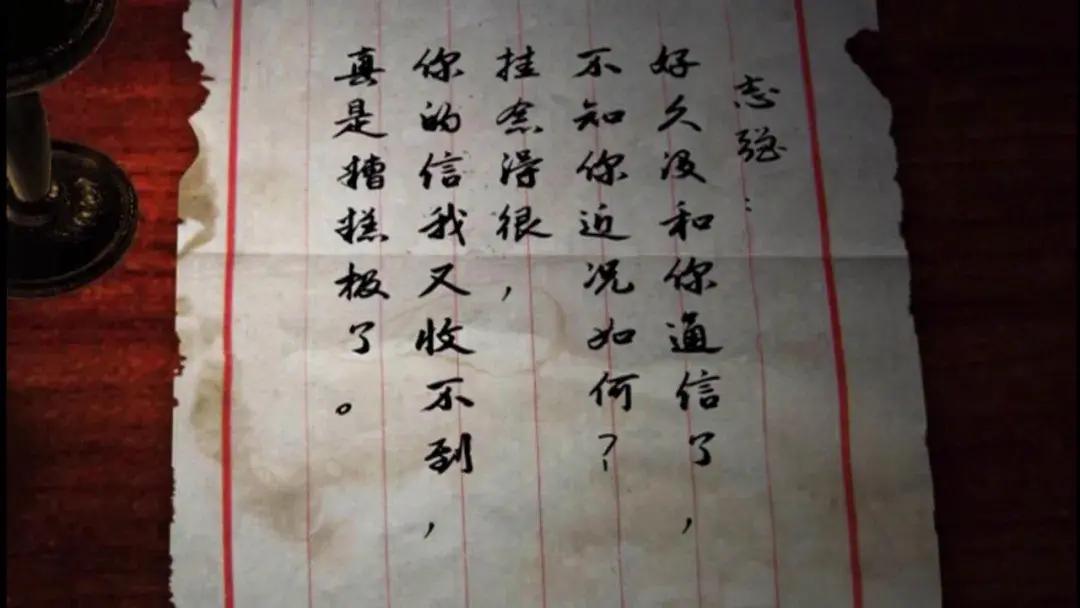 志强：
好久没和你通信了，
不知你近况如何？
挂念得很，
你的信我又收不到，
真是糟糕极了。